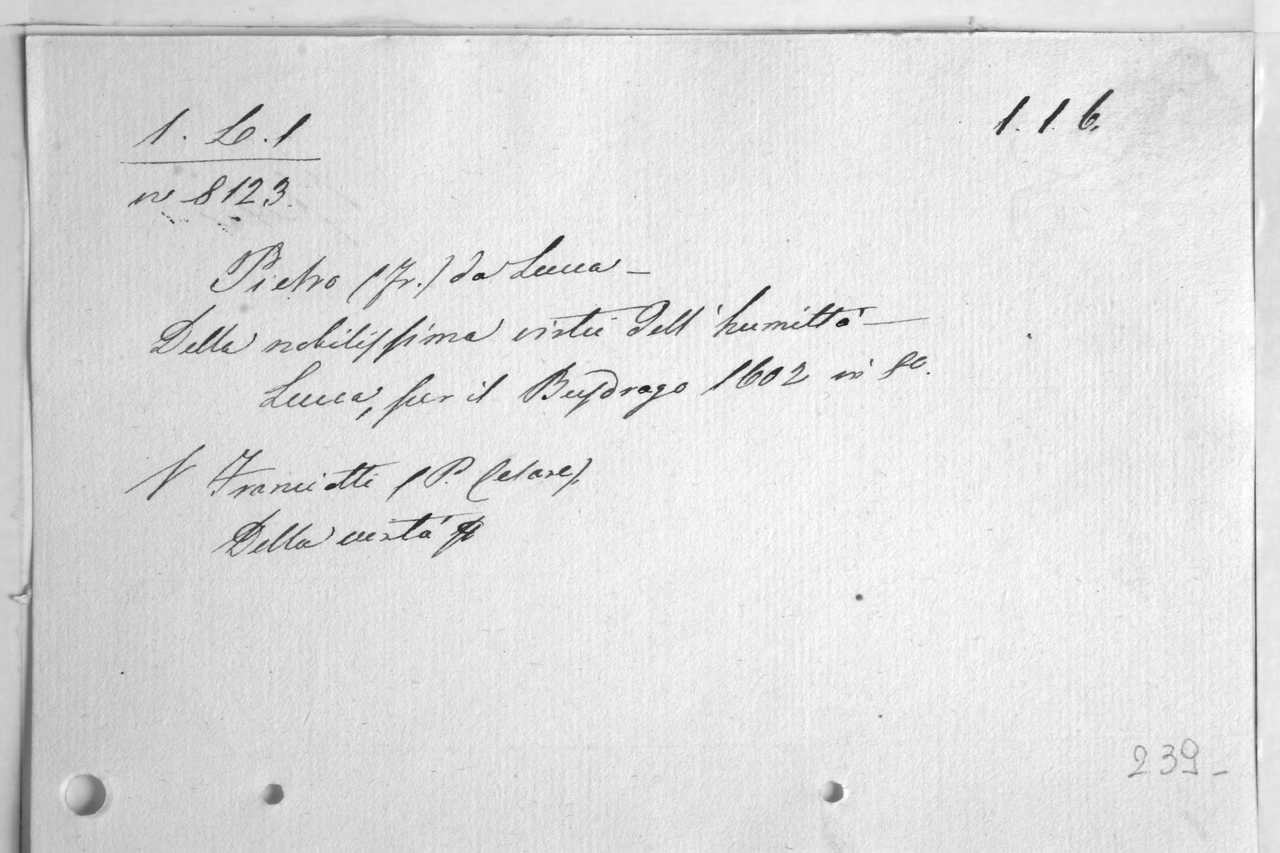 1. L. 1
1. 1. 6.
n° 8123.
Pietro (Fr.) da Lucca —
Della nobilissima virtù dell'humiltà —
Lucca, per il Busdrago 1602 in 8°.
V Franciotti (P. Cesare).
Della
239 -